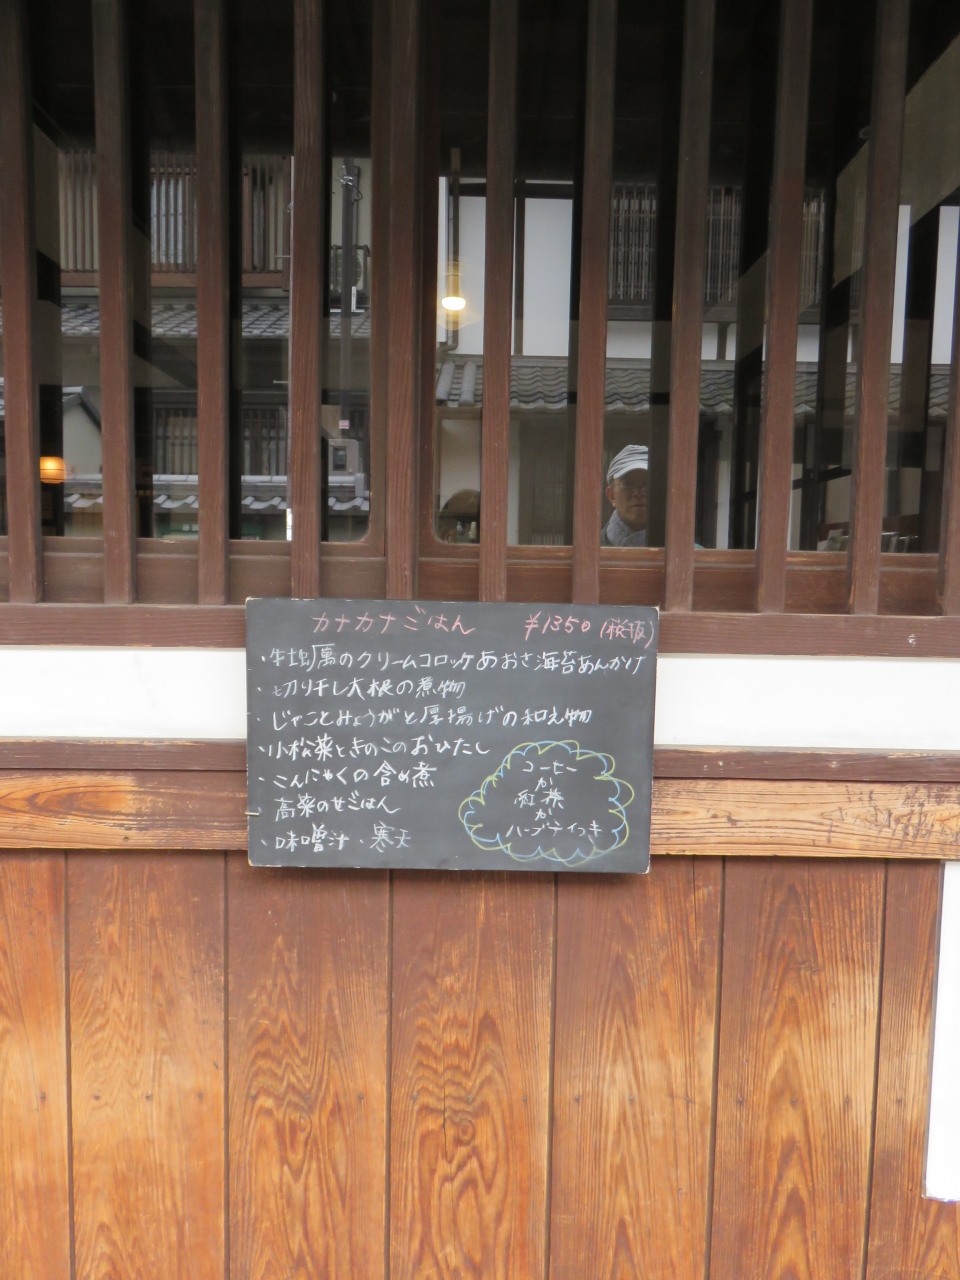 カナカナごはん ¥1350(税抜)
・牡蠣のクリームコロッケあおさ海苔あんかけ
・切り干し大根の煮物
・じゃことみょうがと厚揚げの和え物
・小松菜ときのこのおひたし
・こんにゃくの含め煮
高菜のせごはん
・味噌汁・寒天
コーヒー
か
紅茶
か
ハーブティつき